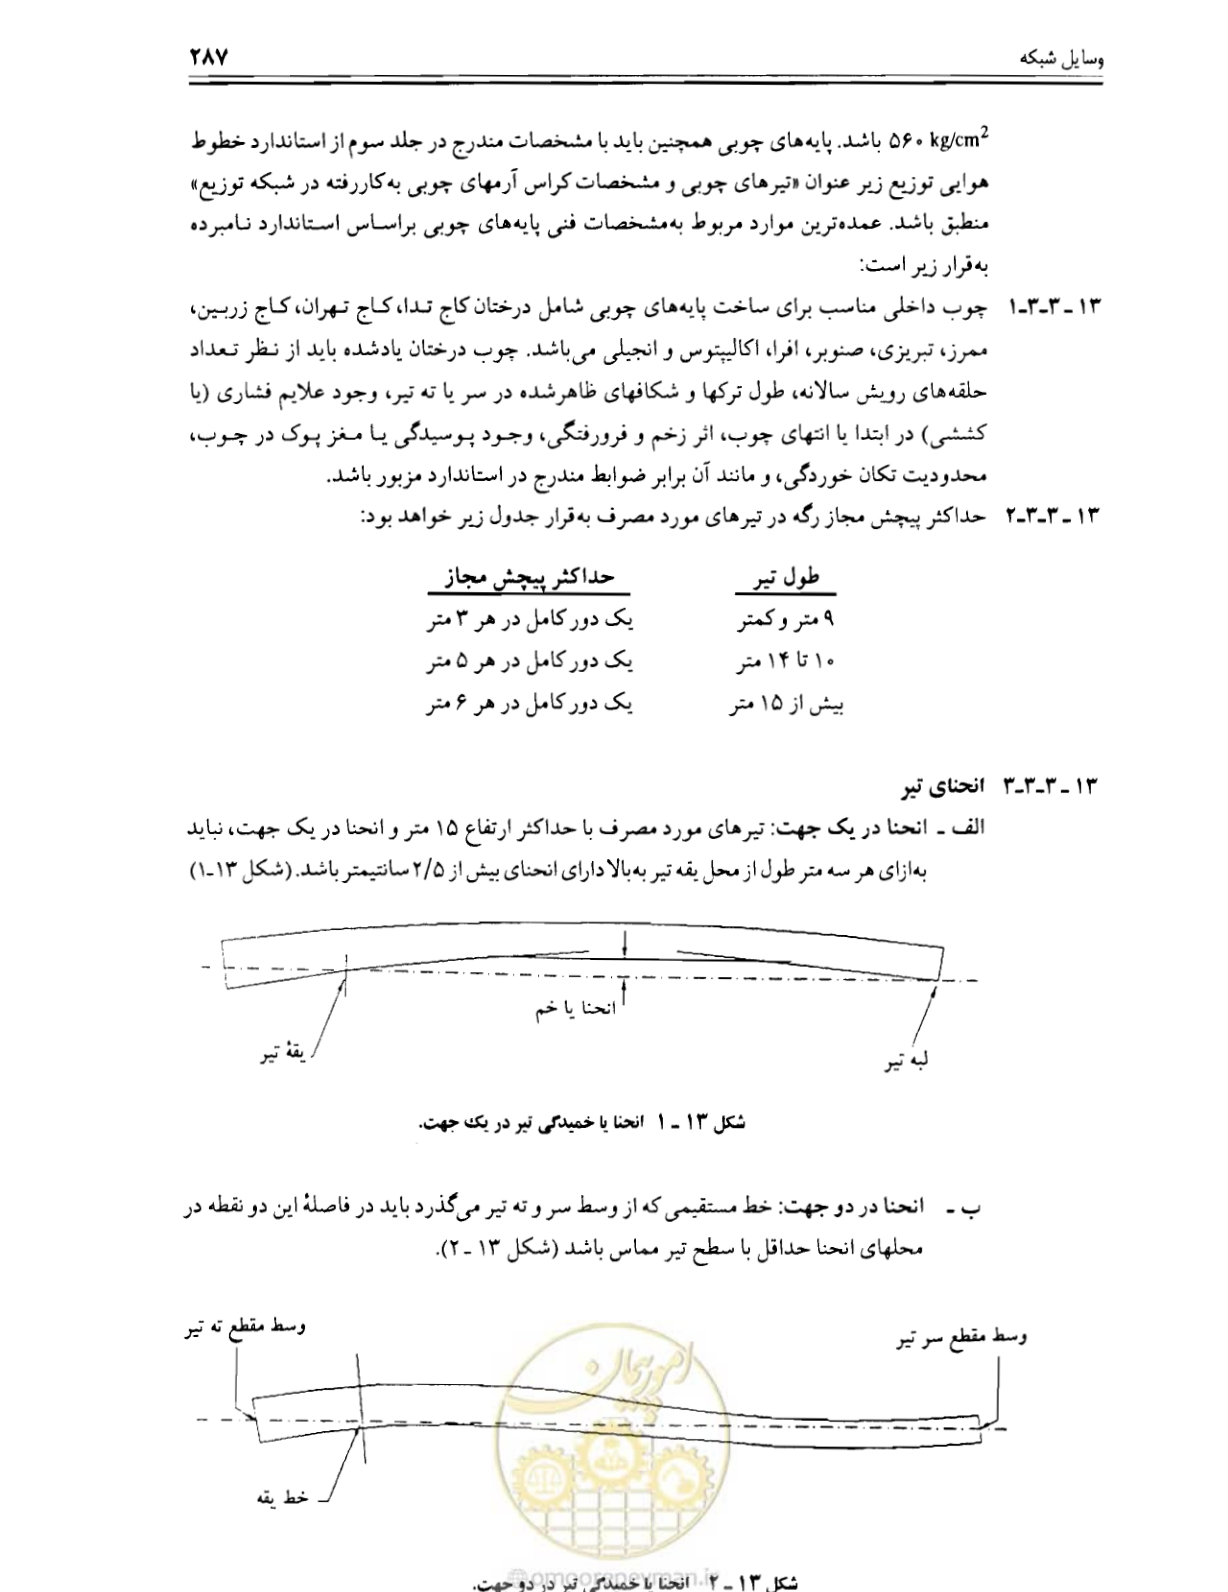 وسایل شبکه ۲۸۷
۵۶۰ kg/cm² باشد. پایه‌های چوبی همچنین باید با مشخصات مندرج در جلد سوم از استاندارد خطوط
هوایی توزیع زیر عنوان «تیرهای چوبی و مشخصات کراس آرمهای چوبی به‌کاررفته در شبکه توزیع»
منطبق باشد. عمده‌ترین موارد مربوط به‌مشخصات فنی پایه‌های چوبی براساس استاندارد نامبرده
به‌قرار زیر است:
۱۳ ـ ۳ـ۳ـ۱ چوب داخلی مناسب برای ساخت پایه‌های چوبی شامل درختان کاج تدا، کاج تهران، کاج زربین،
ممرز، تبریزی، صنوبر، افرا، اکالیپتوس و انجیلی می‌باشد. چوب درختان یادشده باید از نظر تعداد
حلقه‌های رویش سالانه، طول ترکها و شکافهای ظاهرشده در سر یا ته تیر، وجود علایم فشاری (یا
کششی) در ابتدا یا انتهای چوب، اثر زخم و فرورفتگی، وجود پوسیدگی یا مغز پوک در چوب،
محدودیت تکان خوردگی، و مانند آن برابر ضوابط مندرج در استاندارد مزبور باشد.
۱۳ ـ ۳ـ۳ـ۲ حداکثر پیچش مجاز رگه در تیرهای مورد مصرف به‌قرار جدول زیر خواهد بود:
طول تیر حداکثر پیچش مجاز
۹ متر و کمتر یک دور کامل در هر ۳ متر
۱۰ تا ۱۴ متر یک دور کامل در هر ۵ متر
بیش از ۱۵ متر یک دور کامل در هر ۶ متر
۱۳ ـ ۳ـ۳ـ۳ انحنای تیر
الف ـ انحنا در یک جهت: تیرهای مورد مصرف با حداکثر ارتفاع ۱۵ متر و انحنا در یک جهت، نباید
به‌ازای هر سه متر طول از محل یقه تیر به‌بالا دارای انحنای بیش از ۲/۵ سانتیمتر باشد. (شکل ۱۳ـ۱)
انحنا یا خم
یقهٔ تیر
لبه تیر
شکل ۱۳ ـ ۱ انحنا یا خمیدگی تیر در یک جهت.
ب ـ انحنا در دو جهت: خط مستقیمی که از وسط سر و ته تیر می‌گذرد باید در فاصلهٔ این دو نقطه در
محلهای انحنا حداقل با سطح تیر مماس باشد (شکل ۱۳ ـ ۲).
وسط مقطع ته تیر
وسط مقطع سر تیر
امور پیمان
خط یقه
@omoorepeyman.ir
شکل ۱۳ ـ ۲ انحنا یا خمیدگی تیر در دو جهت.